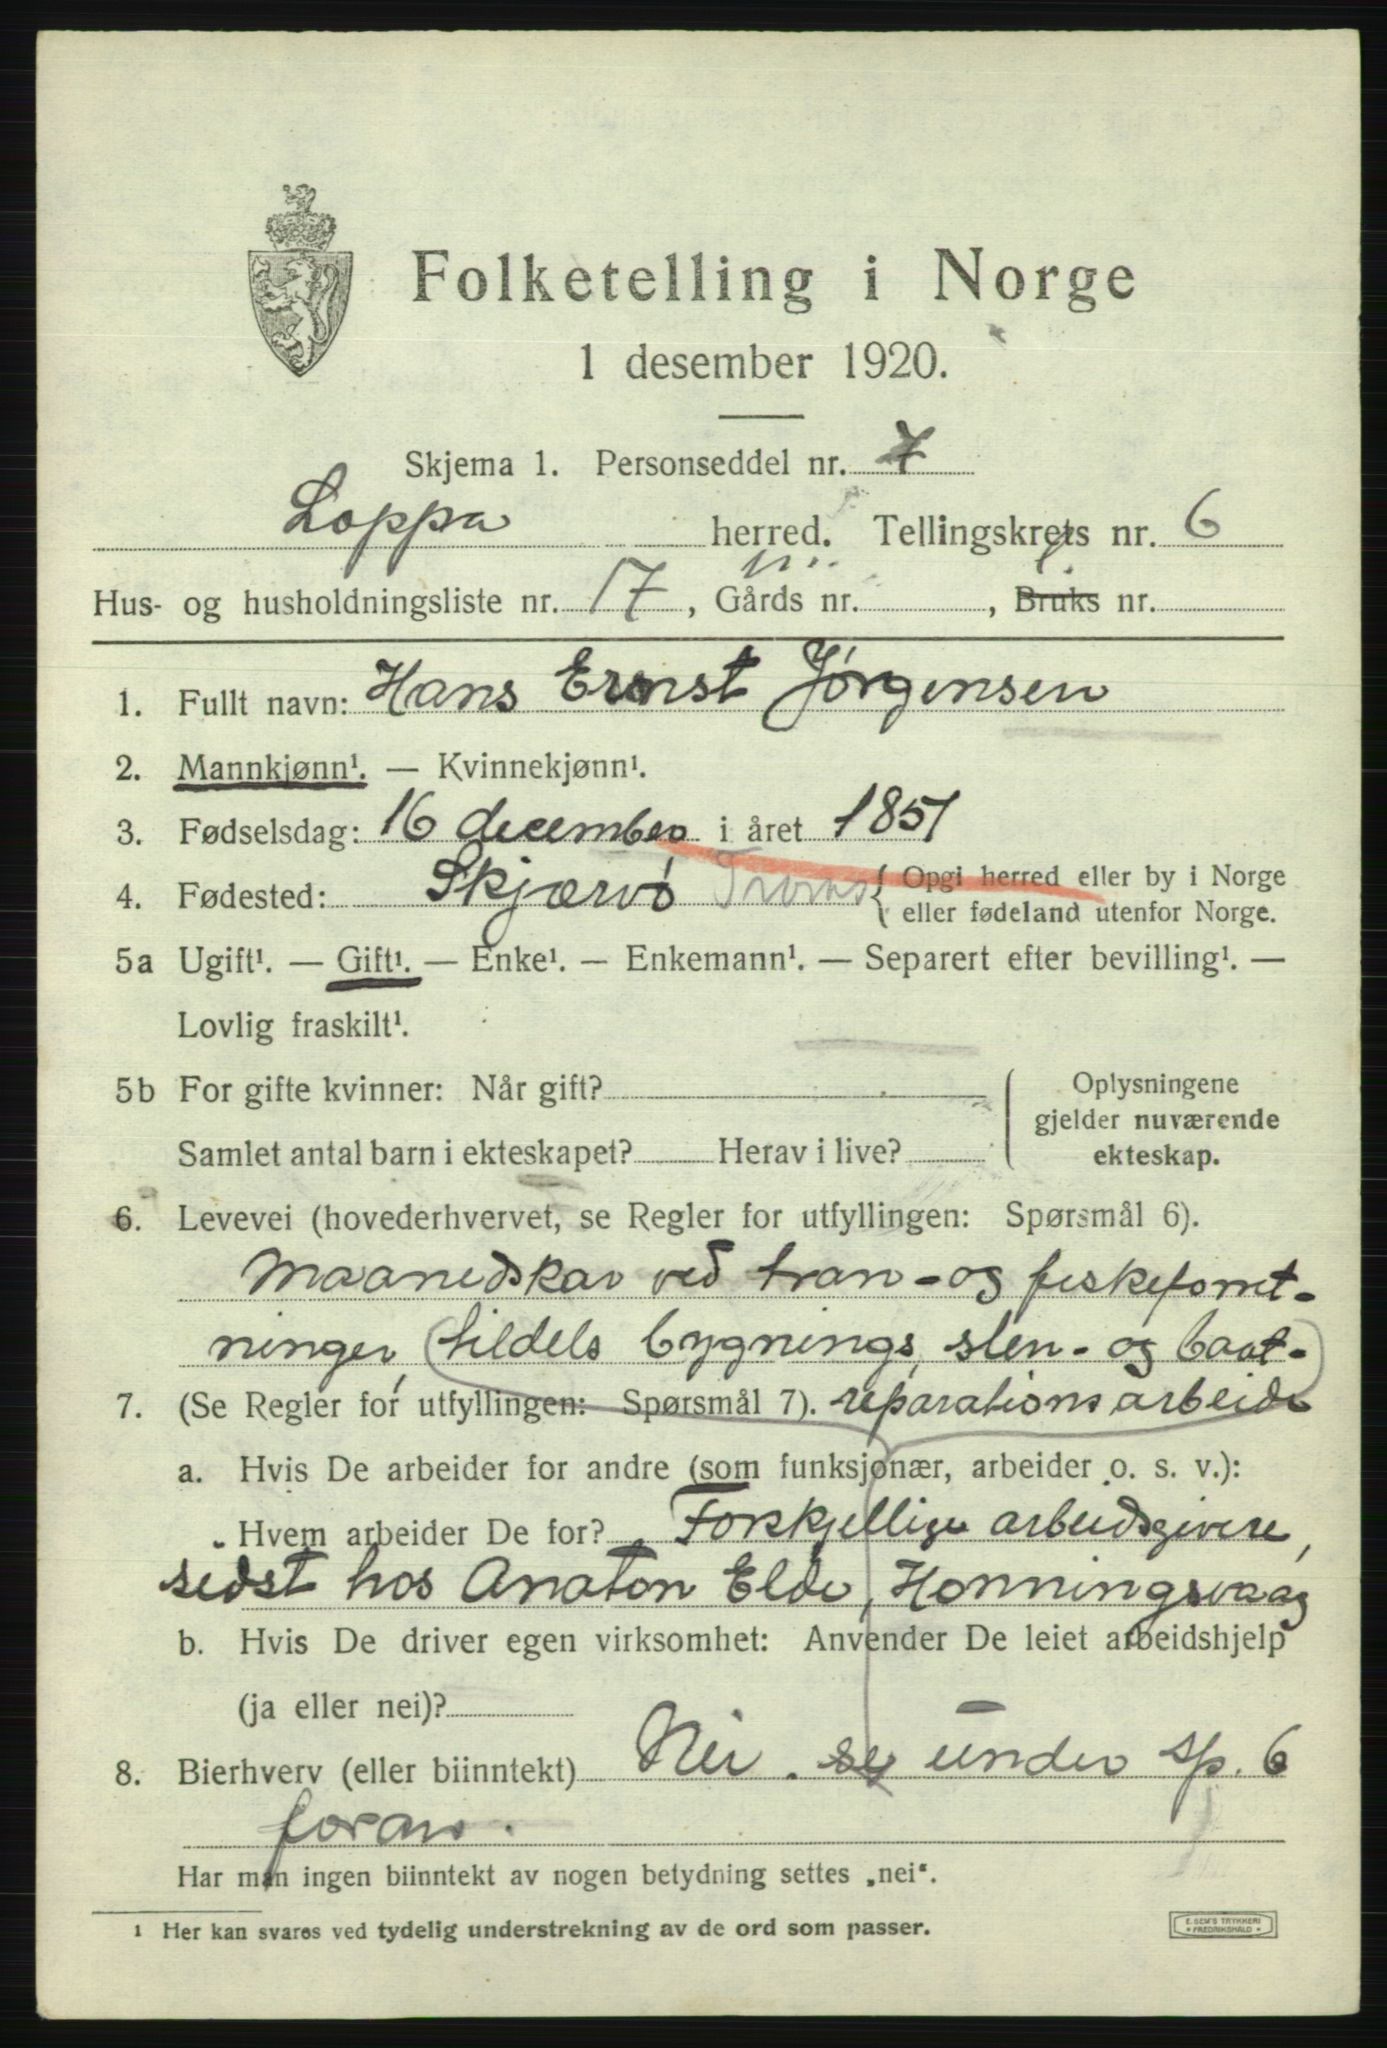 Folketelling i Norge
1 desember 1920.
Skjema 1. Personseddel nr. 7
Loppa herred. Tellingskrets nr. 6
Hus- og husholdningsliste nr. 17, Gårds nr. , Bruks nr.
1. Fullt navn: Hans Ernst Jørgensen
2. Mannkjønn¹. — Kvinnekjønn¹.
3. Fødselsdag: 16 december i året 1851
4. Fødested: Skjærvø Troms { Opgi herred eller by i Norge
eller fødeland utenfor Norge.
5a Ugift¹. — Gift¹. — Enke¹. — Enkemann¹. — Separert efter bevilling¹. —
Lovlig fraskilt¹.
5b For gifte kvinner: Når gift?
Samlet antal barn i ekteskapet? Herav i live?
Oplysningene
gjelder nuværende
ekteskap.
6. Levevei (hovederhvervet, se Regler for utfyllingen: Spørsmål 6).
Maanedskar ved tran- og fiskeforret-
ninger, (tildels bygnings, sten- og baat-
7. (Se Regler for utfyllingen: Spørsmål 7). reparationsarbeide
a. Hvis De arbeider for andre (som funksjonær, arbeider o. s. v.):
Hvem arbeider De for? Forskjellige arbeidsgivere,
sedst hos Anaton Elde, Honningsvaag
b. Hvis De driver egen virksomhet: Anvender De leiet arbeidshjelp
(ja eller nei)?
8. Bierhverv (eller biinntekt) Nei. se under sp. 6
foran.
Har man ingen biinntekt av nogen betydning settes „nei".
¹ Her kan svares ved tydelig understrekning av de ord som passer.
E. SEM'S TRYKKERI
FREDRIKSHALD